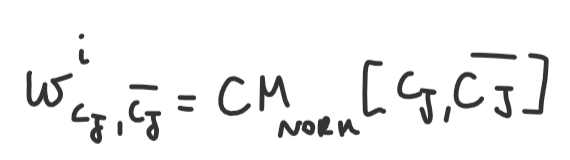 W^i_{C_J, \overline{C_J}} = CM_{NORM} [C_J, \overline{C_J}]